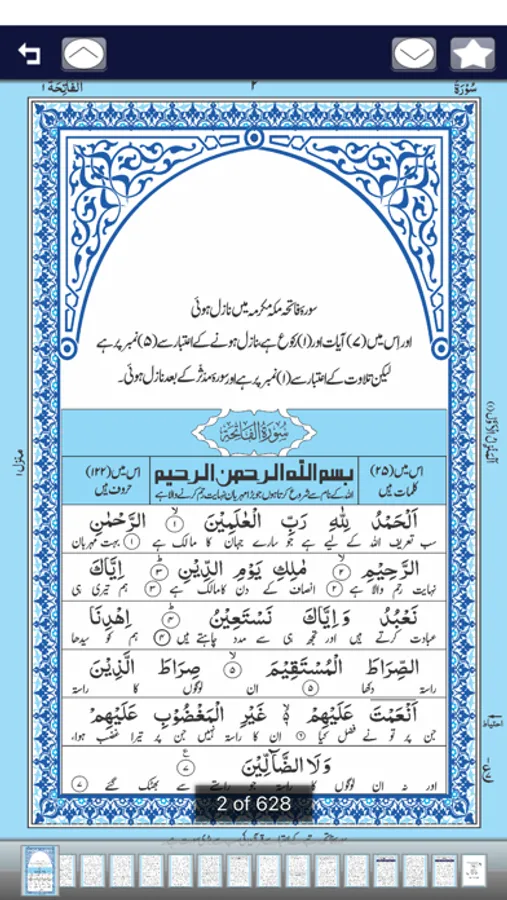 سُوْرَةُ ٢ اَلْفَاتِحَة ١
سورۂ فاتحہ مکہ مکرمہ میں نازل ہوئی
اور اِس میں (۷) آیات اور (۱) رکوع ہے، نازل ہونے کے اعتبار سے (۵) نمبر پر ہے
لیکن تلاوت کے اعتبار سے (۱) نمبر پر ہے اور سورۂ مدثر کے بعد نازل ہوئی۔
سُوْرَةُ الْفَاتِحَةِ
اس میں (۲۵) کلمات ہیں
بسم الله الرحمن الرحيم
اللہ کے نام سے شروع کرتا ہوں جو بڑا مہربان نہایت رحم کرنے والا ہے
اس میں (۱۲۲) حروف ہیں
اَلْحَمْدُ لِلّٰهِ رَبِّ الْعٰلَمِيْنَ ۙ﴿۱﴾ الرَّحْمٰنِ
سب تعریف اللہ کے لیے ہے جو سارے جہان کا مالک ہے ﴿۱﴾ بہت مہربان
الرَّحِيْمِ ۙ﴿۲﴾ مٰلِكِ يَوْمِ الدِّيْنِ ؕ﴿۳﴾ اِيَّاكَ
نہایت رحم والا ہے ﴿۲﴾ انصاف کے دن کا مالک ہے ﴿۳﴾ ہم تیری ہی
نَعْبُدُ وَ اِيَّاكَ نَسْتَعِيْنُ ؕ﴿۴﴾ اِهْدِنَا
عبادت کرتے ہیں اور تجھ ہی سے مدد چاہتے ہیں ﴿۴﴾ ہم کو سیدھا
الصِّرَاطَ الْمُسْتَقِيْمَ ۙ﴿۵﴾ صِرَاطَ الَّذِيْنَ
راستہ دکھا ﴿۵﴾ ان لوگوں کا راستہ
اَنْعَمْتَ عَلَيْهِمْ ۙ۬﴿۶﴾ غَيْرِ الْمَغْضُوْبِ عَلَيْهِمْ
جن پر تو نے فضل کیا ﴿۶﴾ ان کا راستہ نہیں جن پر تیرا غضب ہوا،
وَلَا الضَّآلِّيْنَ ﴿۷﴾
اور نہ ان لوگوں کا راستہ جو راستے سے بھٹک گئے ﴿۷﴾
منزل ۱
احتیاط
2 of 628